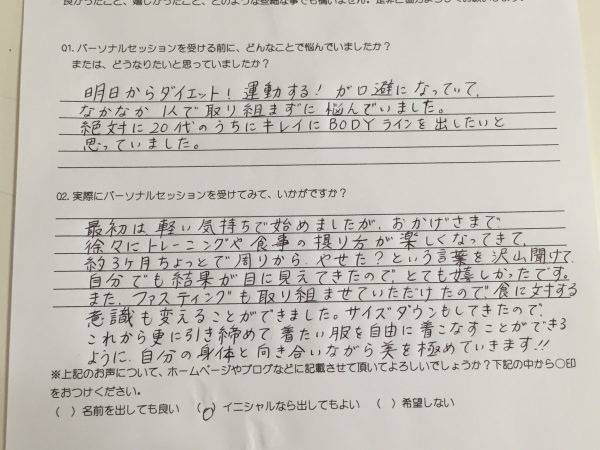 良かったこと、嬉しかったこと、どのような些細な事でも構いません。是非ご協力よろしくお願いします。
Q1. パーソナルセッションを受ける前に、どんなことで悩んでいましたか?
または、どうなりたいと思っていましたか?
明日からダイエット!運動する!が口癖になっていて、
なかなか1人で取り組まずに悩んでいました。
絶対に20代のうちにキレイにBODYラインを出したいと
思っていました。
Q2. 実際にパーソナルセッションを受けてみて、いかがですか?
最初は軽い気持ちで始めましたが、おかげさまで、
徐々にトレーニングや食事の摂り方が楽しくなってきて、
約3ヶ月ちょっとで周りから、やせた?という言葉を沢山聞けて、
自分でも結果が目に見えてきたので、とても嬉しかったです。
また、ファスティングも取り組ませていただけたので、食に対する
意識も変えることができました。サイズダウンもしてきたので、
これから更に引き締めて、着たい服を自由に着こなすことができる
ように、自分の身体と向き合いながら美を極めていきます!!
※上記のお声について、ホームページやブログなどに記載させて頂いてよろしいでしょうか?下記の中から○印
をおつけください。
( ) 名前を出しても良い (○) イニシャルなら出してもよい ( ) 希望しない